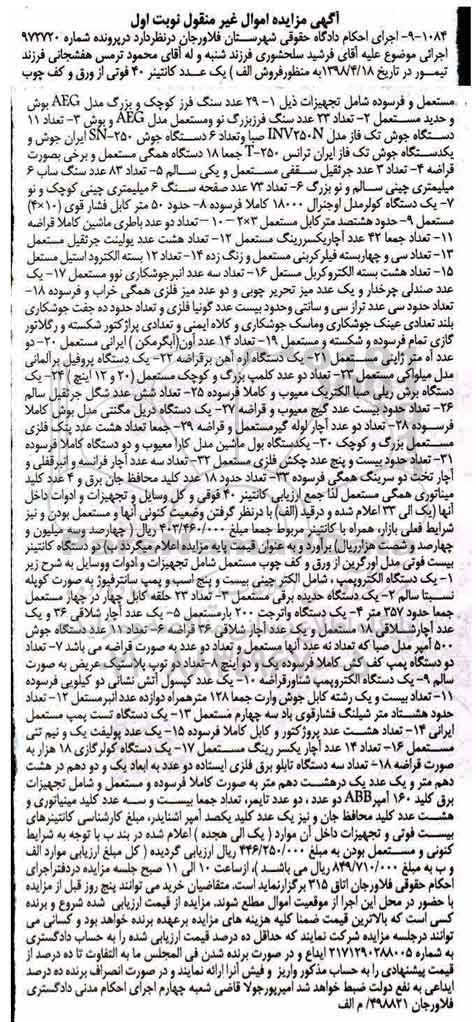 آگهی مزایده اموال غیر منقول نوبت اول
۹-۱۰۸۴- اجرای احکام دادگاه حقوقی شهرستان فلاورجان درنظردارد درپرونده شماره ۹۷۲۷۲۰
اجرائی موضوع علیه آقای فرشید سلحشوری فرزند شنبه و له آقای محمود ترمس هفشجانی فرزند
تیمور در تاریخ ۱۳۹۸/۴/۱۸به منظورفروش الف ) یک عدد کانتینر ۴۰ فوتی از ورق و کف چوب
مستعمل و فرسوده شامل تجهیزات ذیل ۱- ۲۹ عدد سنگ فرز کوچک و بزرگ مدل AEG بوش
و حدید مستعمل ۲- تعداد ۲۳ عدد سنگ فرزبزرگ نو ومستعمل مدل AEG و بوش ۳- تعداد ۱۱
دستگاه جوش تک فاز مدل INV۲۵۰N صبا وتعداد ۶ دستگاه جوش SN-۲۵۰ ایران جوش و
یکدستگاه جوش تک فاز ایران ترانس T-۲۵۰ جمعا ۱۸ دستگاه همگی مستعمل و برخی بصورت
قراضه ۴- تعداد ۳ عدد جرثقیل سقفی مستعمل و یکی سالم ۵- تعداد ۸۳ عدد سنگ ساب ۶
میلیمتری چینی سالم و نو بزرگ ۶- تعداد ۷۳ عدد صفحه سنگ ۶ میلیمتری چینی کوچک و نو
۷- یک دستگاه کولرمدل اوجنرال ۱۸۰۰۰ کاملا فرسوده ۸- حدود ۵۰ متر کابل فشار قوی (۱۰×۴)
مستعمل ۹- حدود هشتصد مترکابل مستعمل ۳×۲ -۱۰- تعداد دو عدد باطری ماشین کاملا قراضه
۱۱- تعداد جمعا ۴۲ عدد آچاریکسررینگ مستعمل ۱۲- تعداد هشت عدد پولیفت جرثقیل مستعمل
۱۳- تعداد سی و چهاربسته فیلرکربنی مستعمل و زنگ زده ۱۴- تعداد ۱۲ بسته الکترود استیل مستعمل
۱۵- تعداد هشت بسته الکتروکربل مستعل ۱۶- تعداد سه عدد انبرجوشکاری نوو مستعمل ۱۷- یک
عدد صندلی چرخدار و یک عدد میز تحریر چوبی و دو عدد میز فلزی همگی خراب و فرسوده ۱۸-
تعداد حدود سی عدد تراز سی و سانتی وحدود بیست عدد گونیا فلزی و تعداد حدود ده جفت جوشکاری
بلند تعدادی عینک جوشکاری وماسک جوشکاری و کلاه ایمنی و تعدادی پراژکتور شکسته و رگلاتور
گازی تمام فرسوده و شکسته و مستعمل ۱۹- تعداد ۱۴ عدد آون(آبگرمکن ) ایرانی مستعمل ۲۰- دو
عدد اه متر ژاپنی مستعمل ۲۱- یک دستگاه اره آهن برقراضه ۲۲- یک دستگاه پروفیل برآلمانی
مدل میلواکی مستعمل ۲۳- تعداد دو عدد کلمپ بزرگ و کوچک مستعمل (۲۰ و ۱۲ اینچ ) ۲۴- یک
دستگاه برش ریلی صبا الکتریک معیوب و کاملا فرسوده ۲۵- تعداد شش عدد شگل جرثقیل سالم
۲۶- تعداد حدود بیست عدد گیج معیوب و قراضه ۲۷- یک دستگاه دریل مگنتی مدل بوش کاملا
فرسوده ۲۸- تعداد دو عدد آچار لوله گیرمستعمل و قراضه ۲۹- جمعا تعداد هشت عدد پتک فلزی
مستعمل بزرگ و کوچک ۳۰- یکدستگاه بول ماشین مدل کارا معیوب و دو دستگاه کاملا فرسوده
۳۱- تعداد حدود بیست و پنج عدد چکش فلزی مستعمل ۳۲- تعداد سه عدد آچار فرانسه و انبرقفلی و
آچار تخت دو سرینگ همگی فرسوده ۳۳- تعداد حدود ۱۸ عدد کلید محافظ جان برق و ۴ عدد کلید
میناتوری همگی مستعمل لذا جمع ارزیابی کانتینر ۴۰ فوقی و کل وسایل و تجهیزات و ادوات داخل
آنها (یک الی ۳۳ اعلام شده و درقید (الف) با درنظر گرفتن وضعیت کنونی آنها و مستعمل بودن و نیز
شرایط فعلی بازار، همراه با کانتینر مربوط جمعا مبلغ ۴۰۳/۴۶۰/۰۰۰ ریال ( چهارصد وسه میلیون و
چهارصد وشصت هزارریال) برآورد و به عنوان قیمت پایه مزایده اعلام میگردد ب) دو دستگاه کانتینر
بیست فوتی مدل اورگرین از ورق و کف چوب مستعمل شامل تجهیزات و ادوات ووسایل به شرح زیر
۱- یک دستگاه الکتروپمپ ، شامل الکتر چینی بیست و پنج اسب و پمپ سانترفیوژ به صورت کوپله
نسبتا سالم ۲- یک دستگاه حدیده برقی مستعمل ۳- تعداد ۲۳ حلقه کابل چهار در چهار مستعمل
جمعا حدود ۳۵۷ متر ۴- یک دستگاه واترجت ۲۰۰ بارمستعمل ۵- یک عدد آچار شلاقی ۳۶ و یک
عدد آچارشلاقی ۱۸ مستعمل و یک عدد آچار شلاقی ۳۶ قراضه ۶- تعداد ۱۱ عدد دستگاه جوش
۵۰۰ آمپر مدل صبا که تعداد نه عدد آنها مستعمل و تعداد دو عدد به صورت قراضه می باشد ۷- تعداد
دو دستگاه پمپ کف کش کاملا فرسوده یک و دو اینچ ۸-تعداد دو توپ پلاستیک عریض به صورت
سالم ۹- یک دستگاه الکتروپمپ شناورقراضه ۱۰- یک عدد کپسول آتش نشانی دو کیلویی فرسوده
۱۱- تعداد بیست و یک رشته کابل جوش وارت جمعا ۱۲۸ مترهمراه دوازده عدد انبرمستعمل ۱۲- تعداد
حدود هشتاد متر شیلنگ فشارقوی باد سه چهارم مستعمل ۱۳- یک دستگاه تست پمپ مستعمل
ایرانی ۱۴- تعداد هشت عدد پروژکتور و کابل کاملا فرسوده ۱۵- یک عدد پولیفت یک و نیم تنی
مستعمل ۱۶- تعداد ۱۴ عدد آچار یکسر رینگ مستعمل ۱۷- یک دستگاه کولرگازی ۱۸ هزار به
صورت قراضه ۱۸- تعداد سه دستگاه تابلو برق فلزی ایستاده دو عدد به ابعاد یک و دو دهم در هشت
دهم متر و یک عدد یک درهشت دهم متر به صورت کاملا فرسوده و مستعمل و شامل تجهیزات
برق کلید ۱۶۰ آمپرABB دو عدد ، دو عدد تایمر، تعداد جمعا بیست و سه عدد کلید مینیاتوری و
هشت عدد کلید محافظ جان و نیز یک عدد کلید یکصد آمپر اشنایدر، مبلغ کارشناسی کانتینرهای
بیست فوتی و تجهیزات داخل آن موارد ( یک الی هجده ) اعلام شده در بند ب با توجه به شرایط
کنونی و مستعمل بودن به مبلغ ۴۴۶/۲۵۰/۰۰۰ ریال ارزیابی گردیده ( کل مبلغ ارزیابی موارد الف
و ب به مبلغ ۸۴۹/۷۱۰/۰۰۰ ریال می باشد )، ازساعت ۱۰ الی ۱۱ صبح جلسه مزایده دردفتراجرای
احکام حقوقی فلاورجان اتاق ۳۱۵ برگزارنماید است. متقاضیان خرید می توانند پنج روز قبل از مزایده
با حضور در محل این اجرا از موقعیت اموال مطلع شوند. مزایده از قیمت ارزیابی شده شروع و برنده
کسی است که بالاترین قیمت ضمنا کلیه هزینه های مزایده برعهده برنده خواهد بود و کسانی می
توانند درجلسه مزایده شرکت نمایند که حداقل ده درصد قیمت ارزیابی شده را به حساب دادگستری
به شماره ۲۱۷۱۲۹۰۲۸۸۰۰۵ ایداع و در صورت برنده شدن فی المجلس ما به التفاوت تا ده درصد از
قیمت پیشنهادی را به حساب مذکور واریز و فیش آنرا ارائه نمایند و در صورت انصراف برنده ده درصد
ایداعی به نفع دولت ضبط خواهد شد امیرپورجولا قاضی شعبه چهارم اجرای احکام مدنی دادگستری
فلاورجان ۴۹۸۸۲۱/ م الف